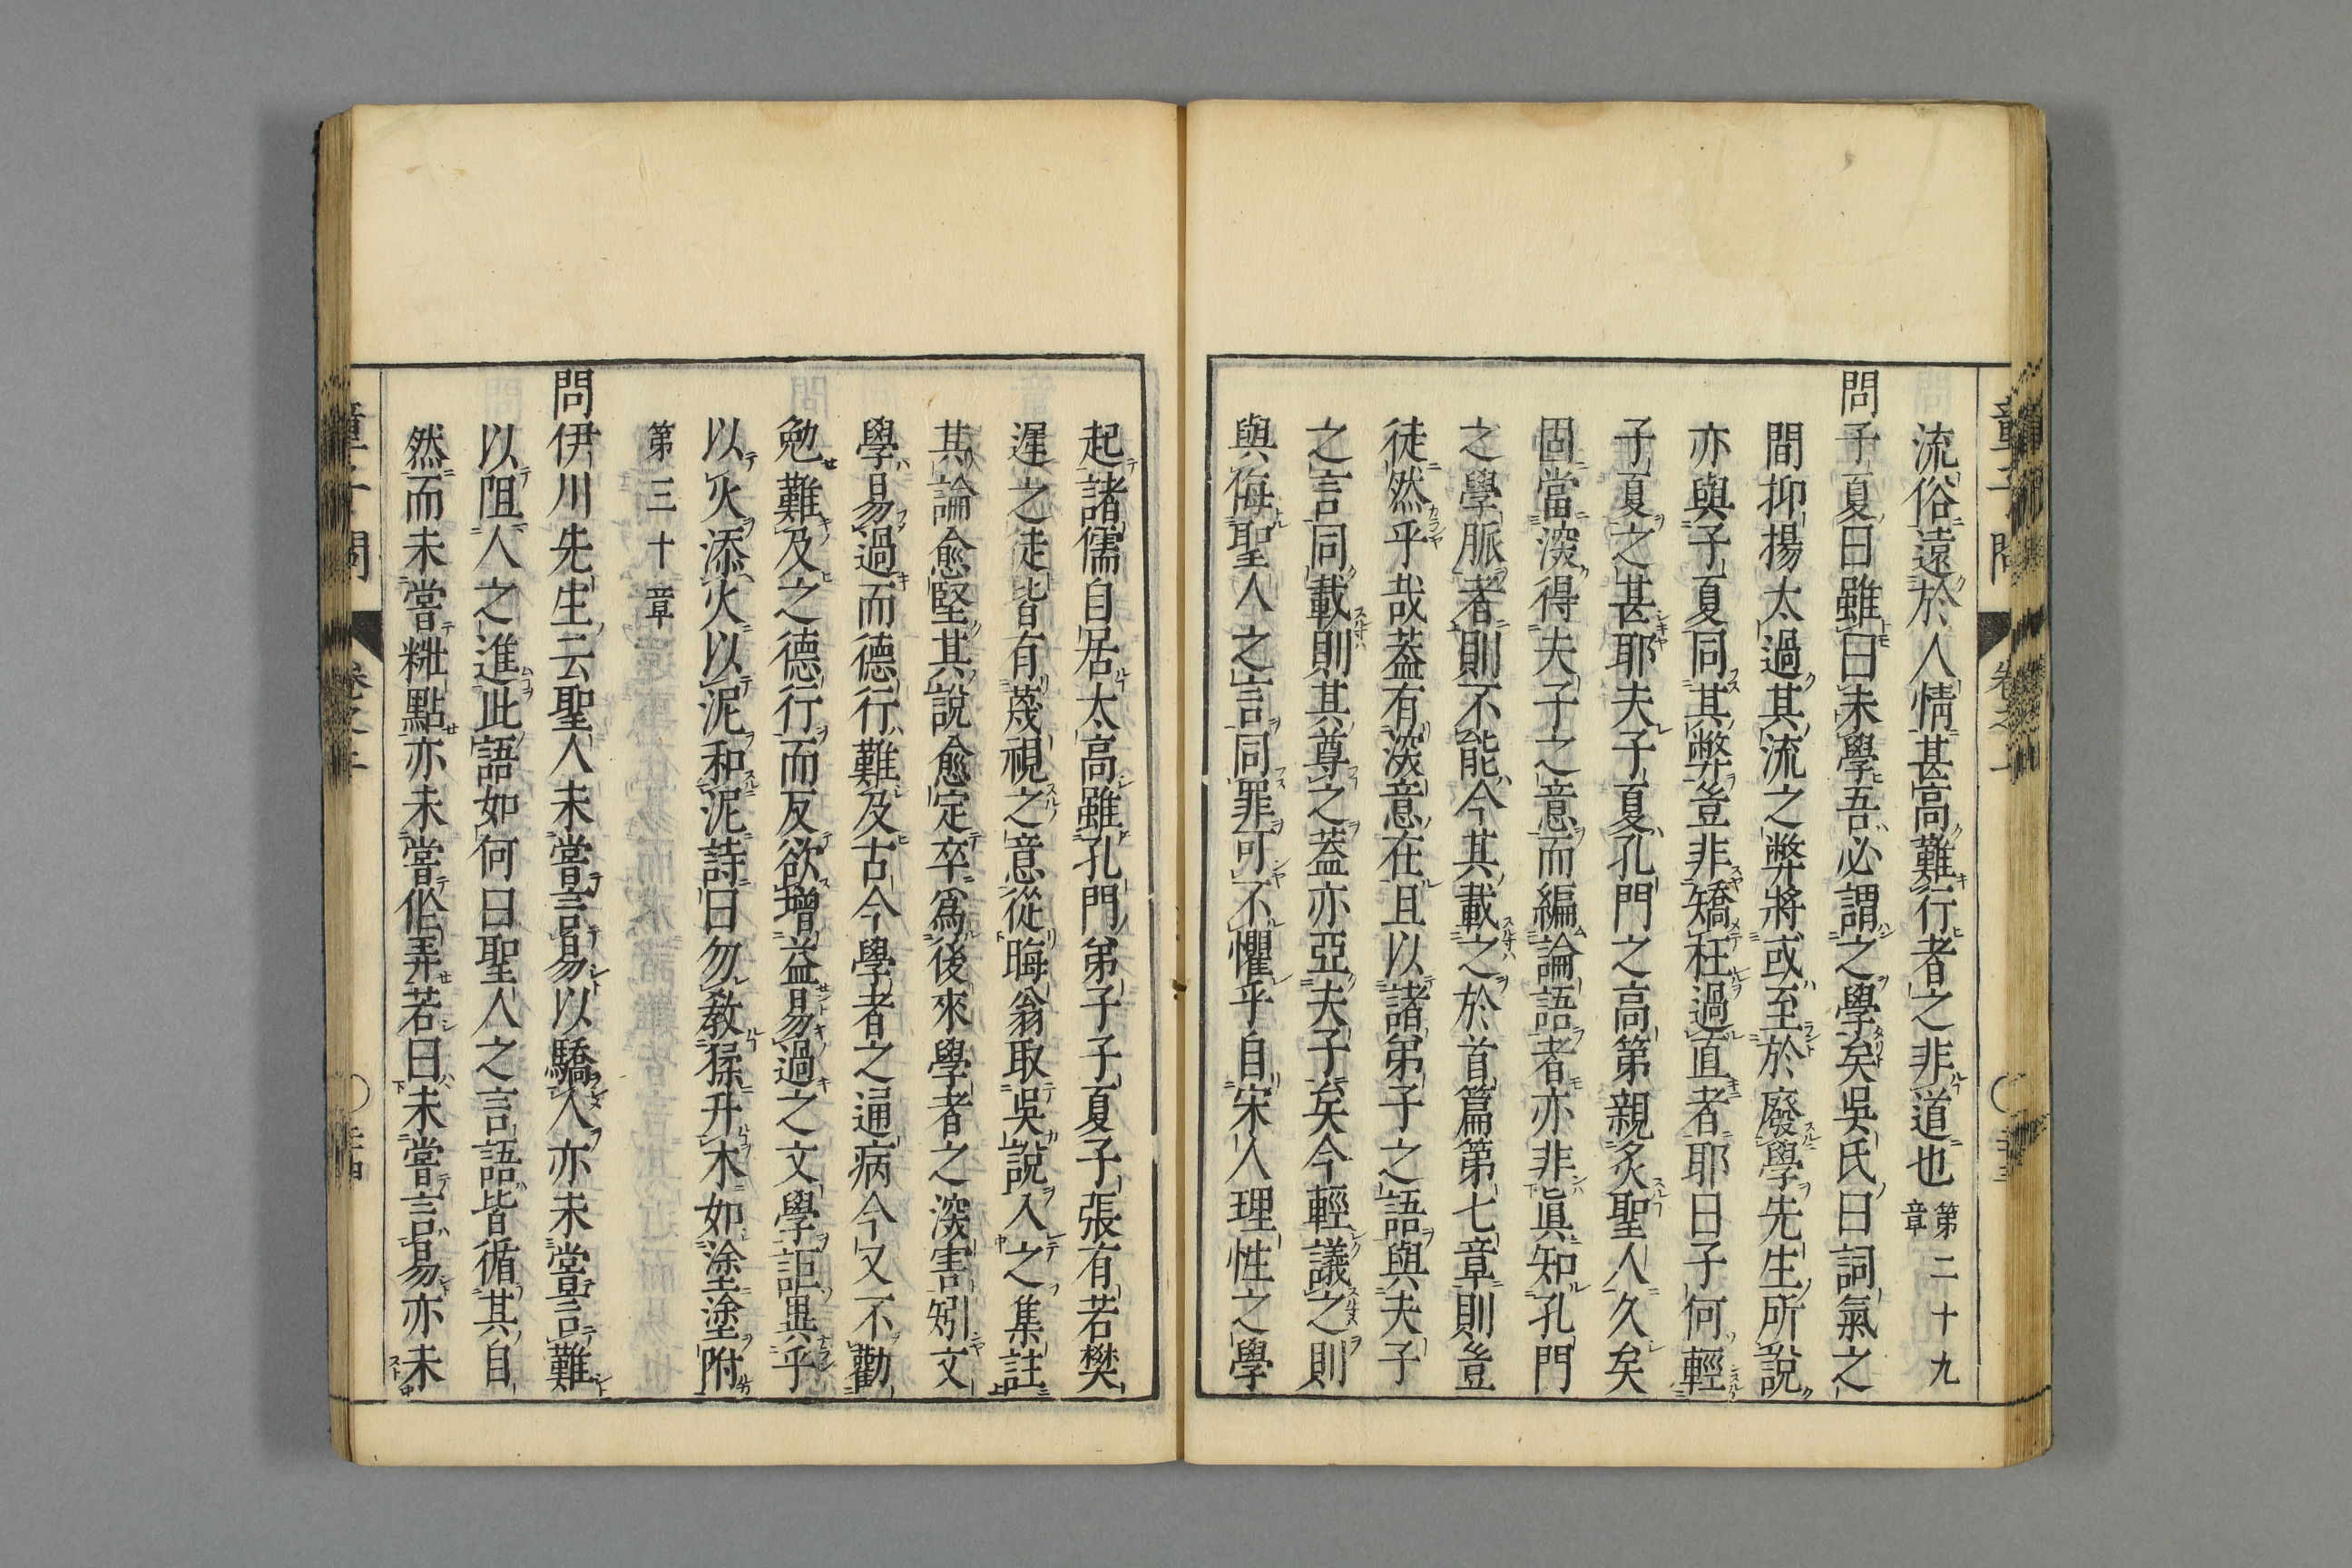 流俗遠於人情甚高難行者之非道也第二十九章
問子夏曰雖曰未學吾必謂之學矣吳氏曰詞氣之
間抑揚太過其流之弊將或至於廢學先生所說
亦與子夏同其弊豈非矯枉過直者耶曰子何輕
子夏之甚耶夫子夏孔門之高第親炙聖人久矣
固當深得夫子之意而編論語者亦非眞知孔門
之學脈者則不能今其載之於首篇第七章則豈
徒然乎哉蓋有深意在且以諸弟子之語與夫子
之言同載則其尊之蓋亦亞夫子矣今輕議之則
與侮聖人之言同罪可不懼乎自宋人理性之學
起諸儒自居太高雖孔門弟子子夏子張有若樊
遲之徒皆有蔑視之意從晦翁取吳說入之集註
其論愈堅其說愈定卒爲後來學者之深害矧文
學易過而德行難及古今學者之通病今又不勸
勉難及之德行而反欲增益易過之文學詎異乎
以火添火以泥和泥詩曰勿敎猱升木如塗塗附
第三十章
問伊川先生云聖人未嘗言易以驕人亦未嘗言難
以阻人之進此語如何曰聖人之言語皆循其自
然而未嘗粧點亦未嘗作弄若曰未嘗言易亦未